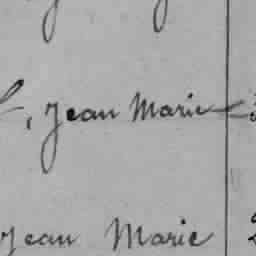 , Jean Marie
Jean Marie